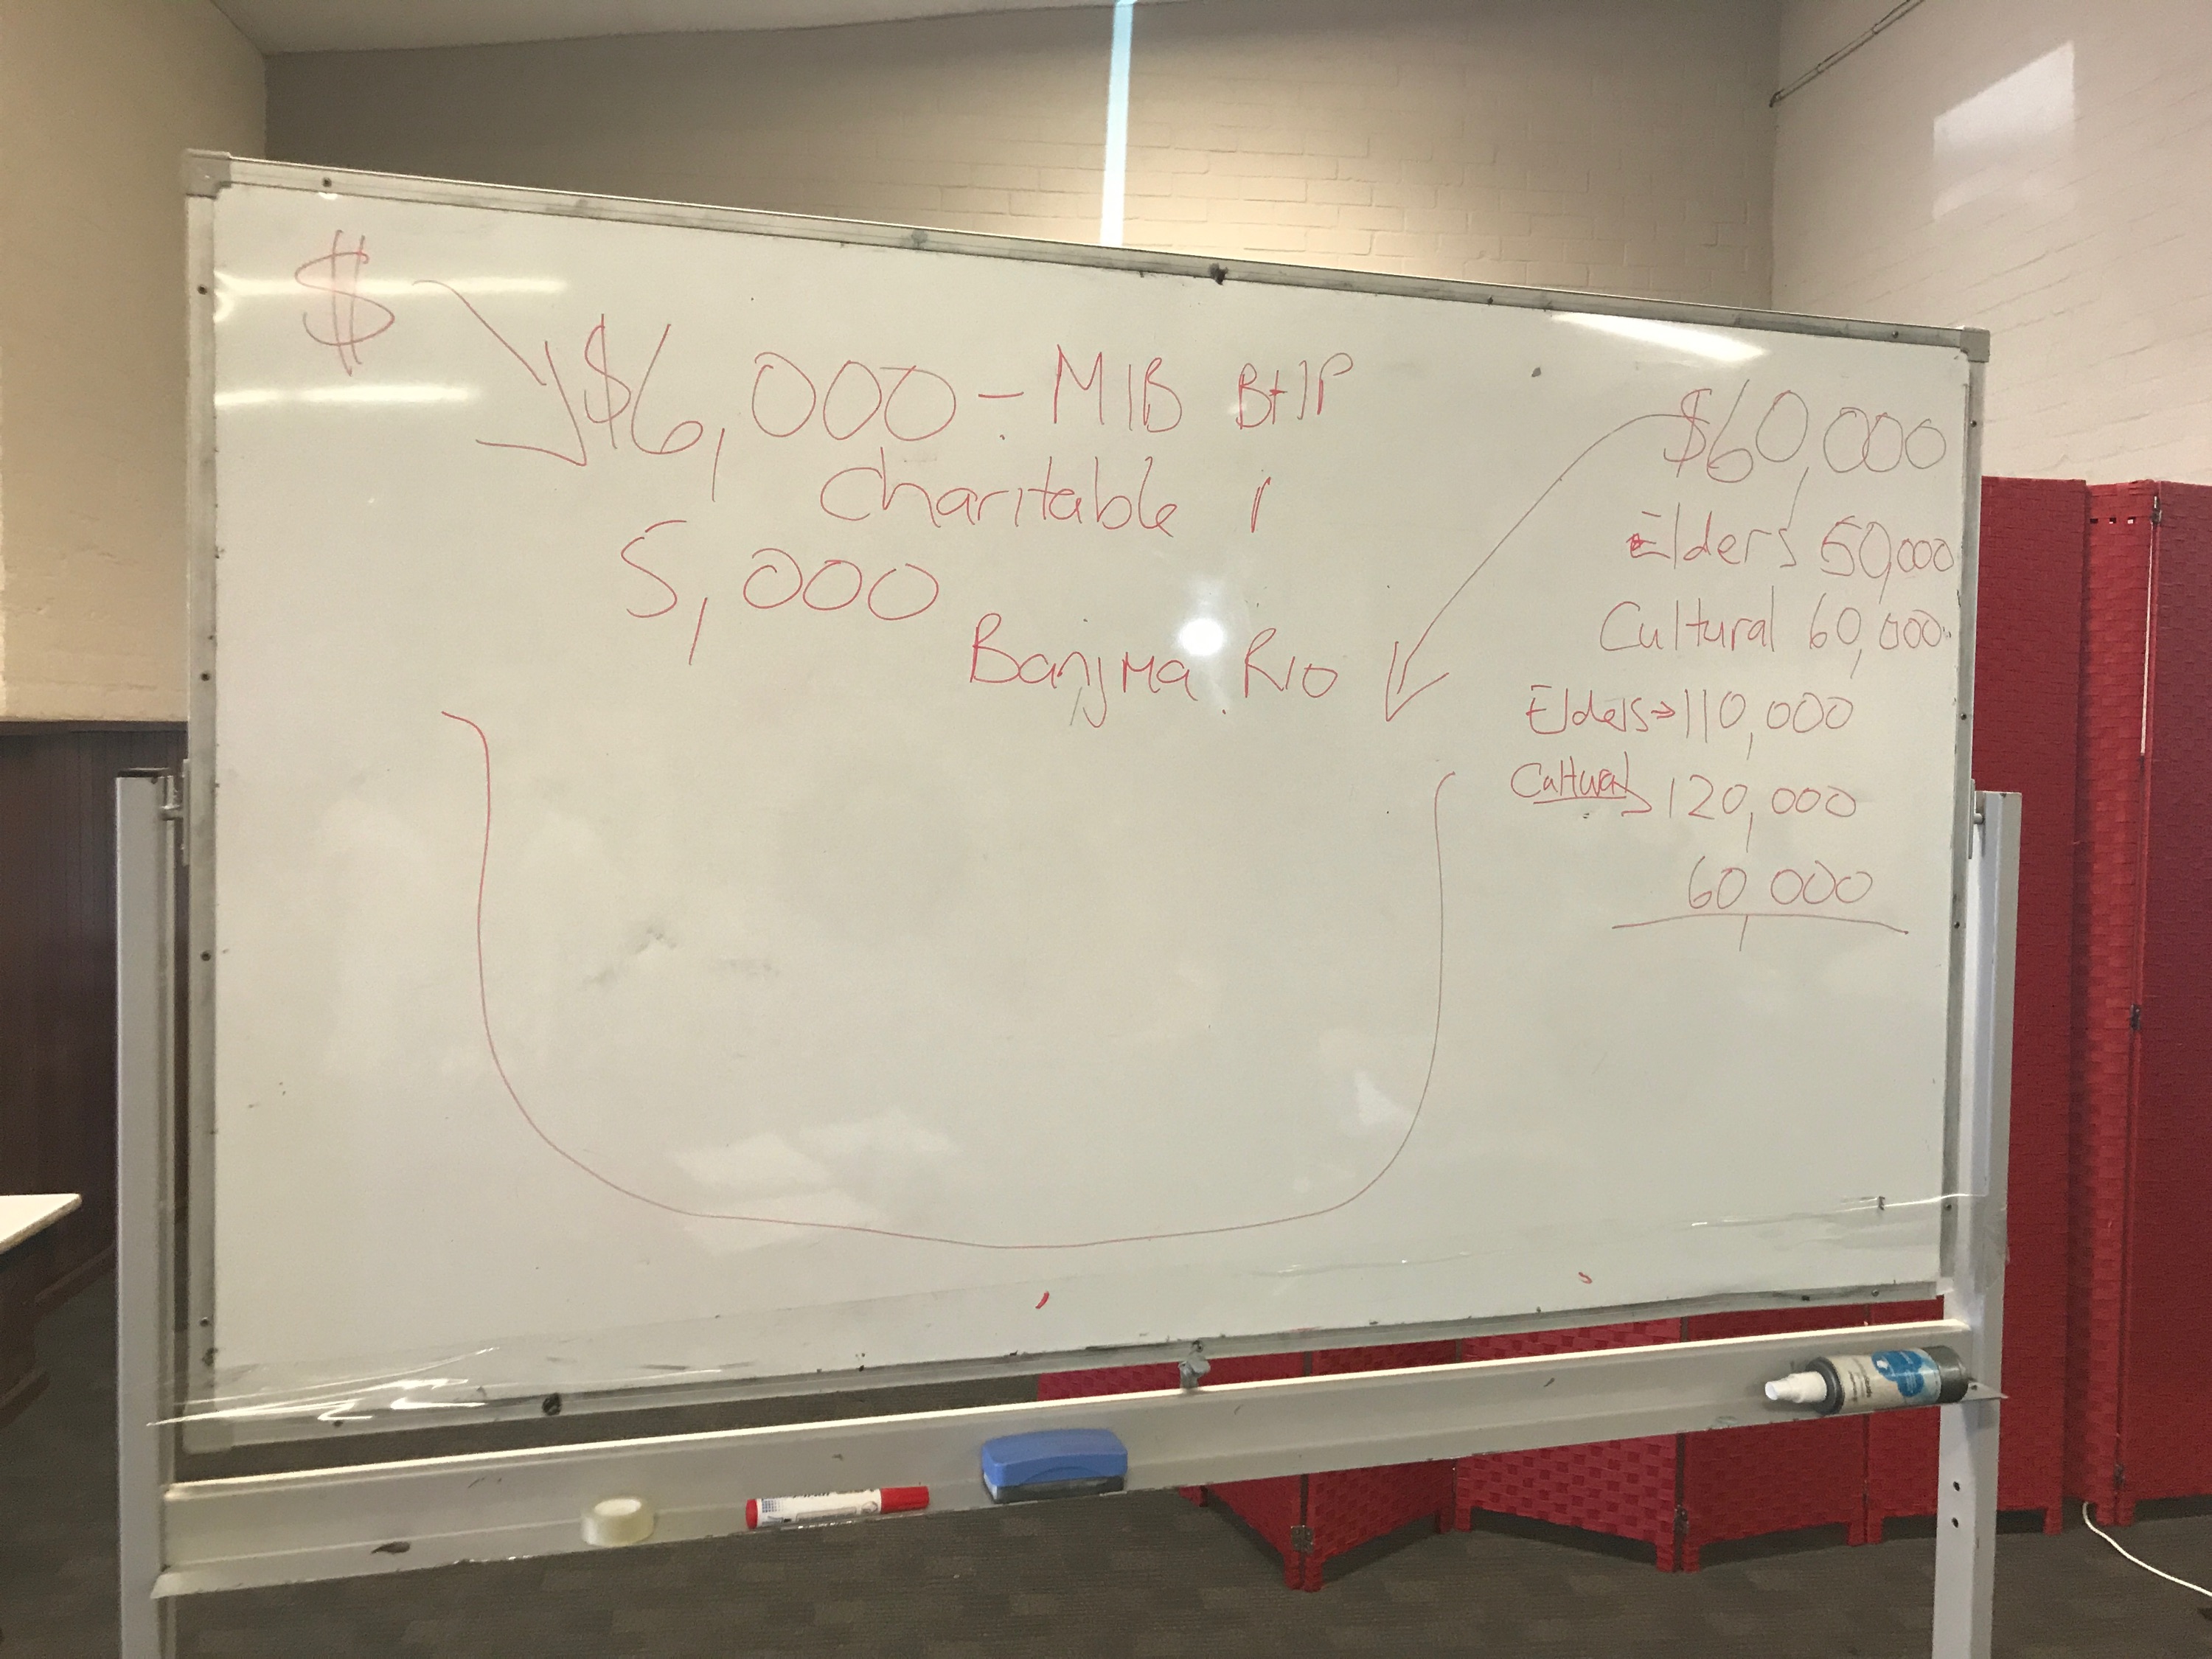 $
$6,000 - MIB BHP
Charitable
5,000
Banjima Rio
$60,000
Elders 50,000
Cultural 60,000
Elders → 110,000
Cultural → 120,000
60,000